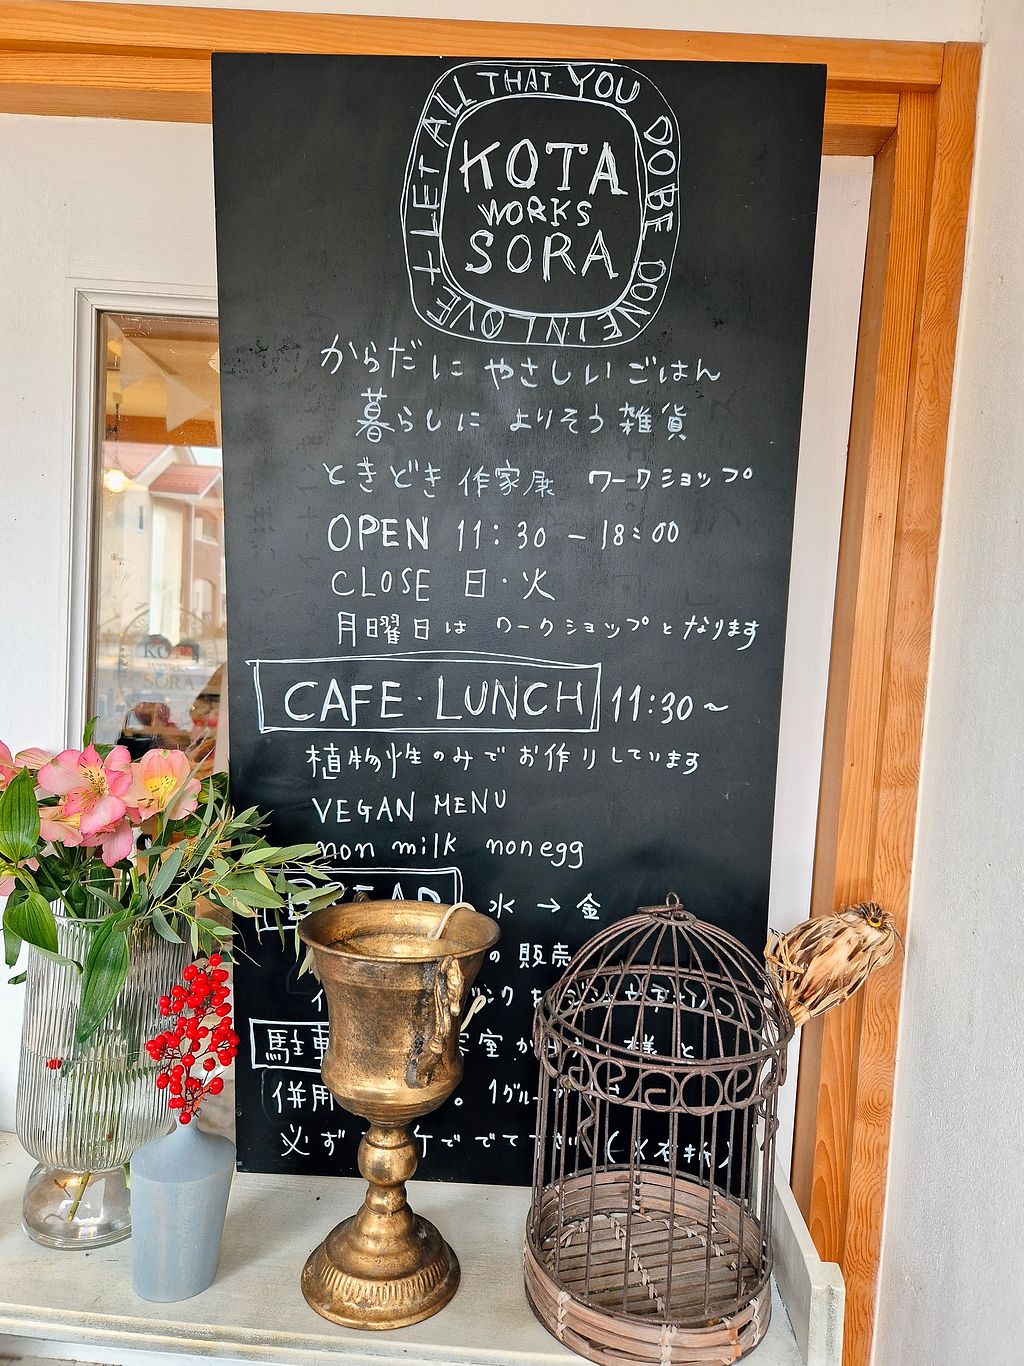 + LET ALL THAT YOU DO BE DONE IN LOVE
KOTA
WORKS
SORA
からだに やさしい ごはん
暮らしに よりそう 雑貨
ときどき 作家展 ワークショップ
OPEN 11:30 - 18:00
CLOSE 日・火
月曜日は ワークショップとなります
CAFE・LUNCH 11:30~
植物性のみで お作りしています
VEGAN MENU
non milk nonegg
水 → 金
の 販売
様 と
併用 。 1グルー
必ず
KOTA
WORKS
SORA